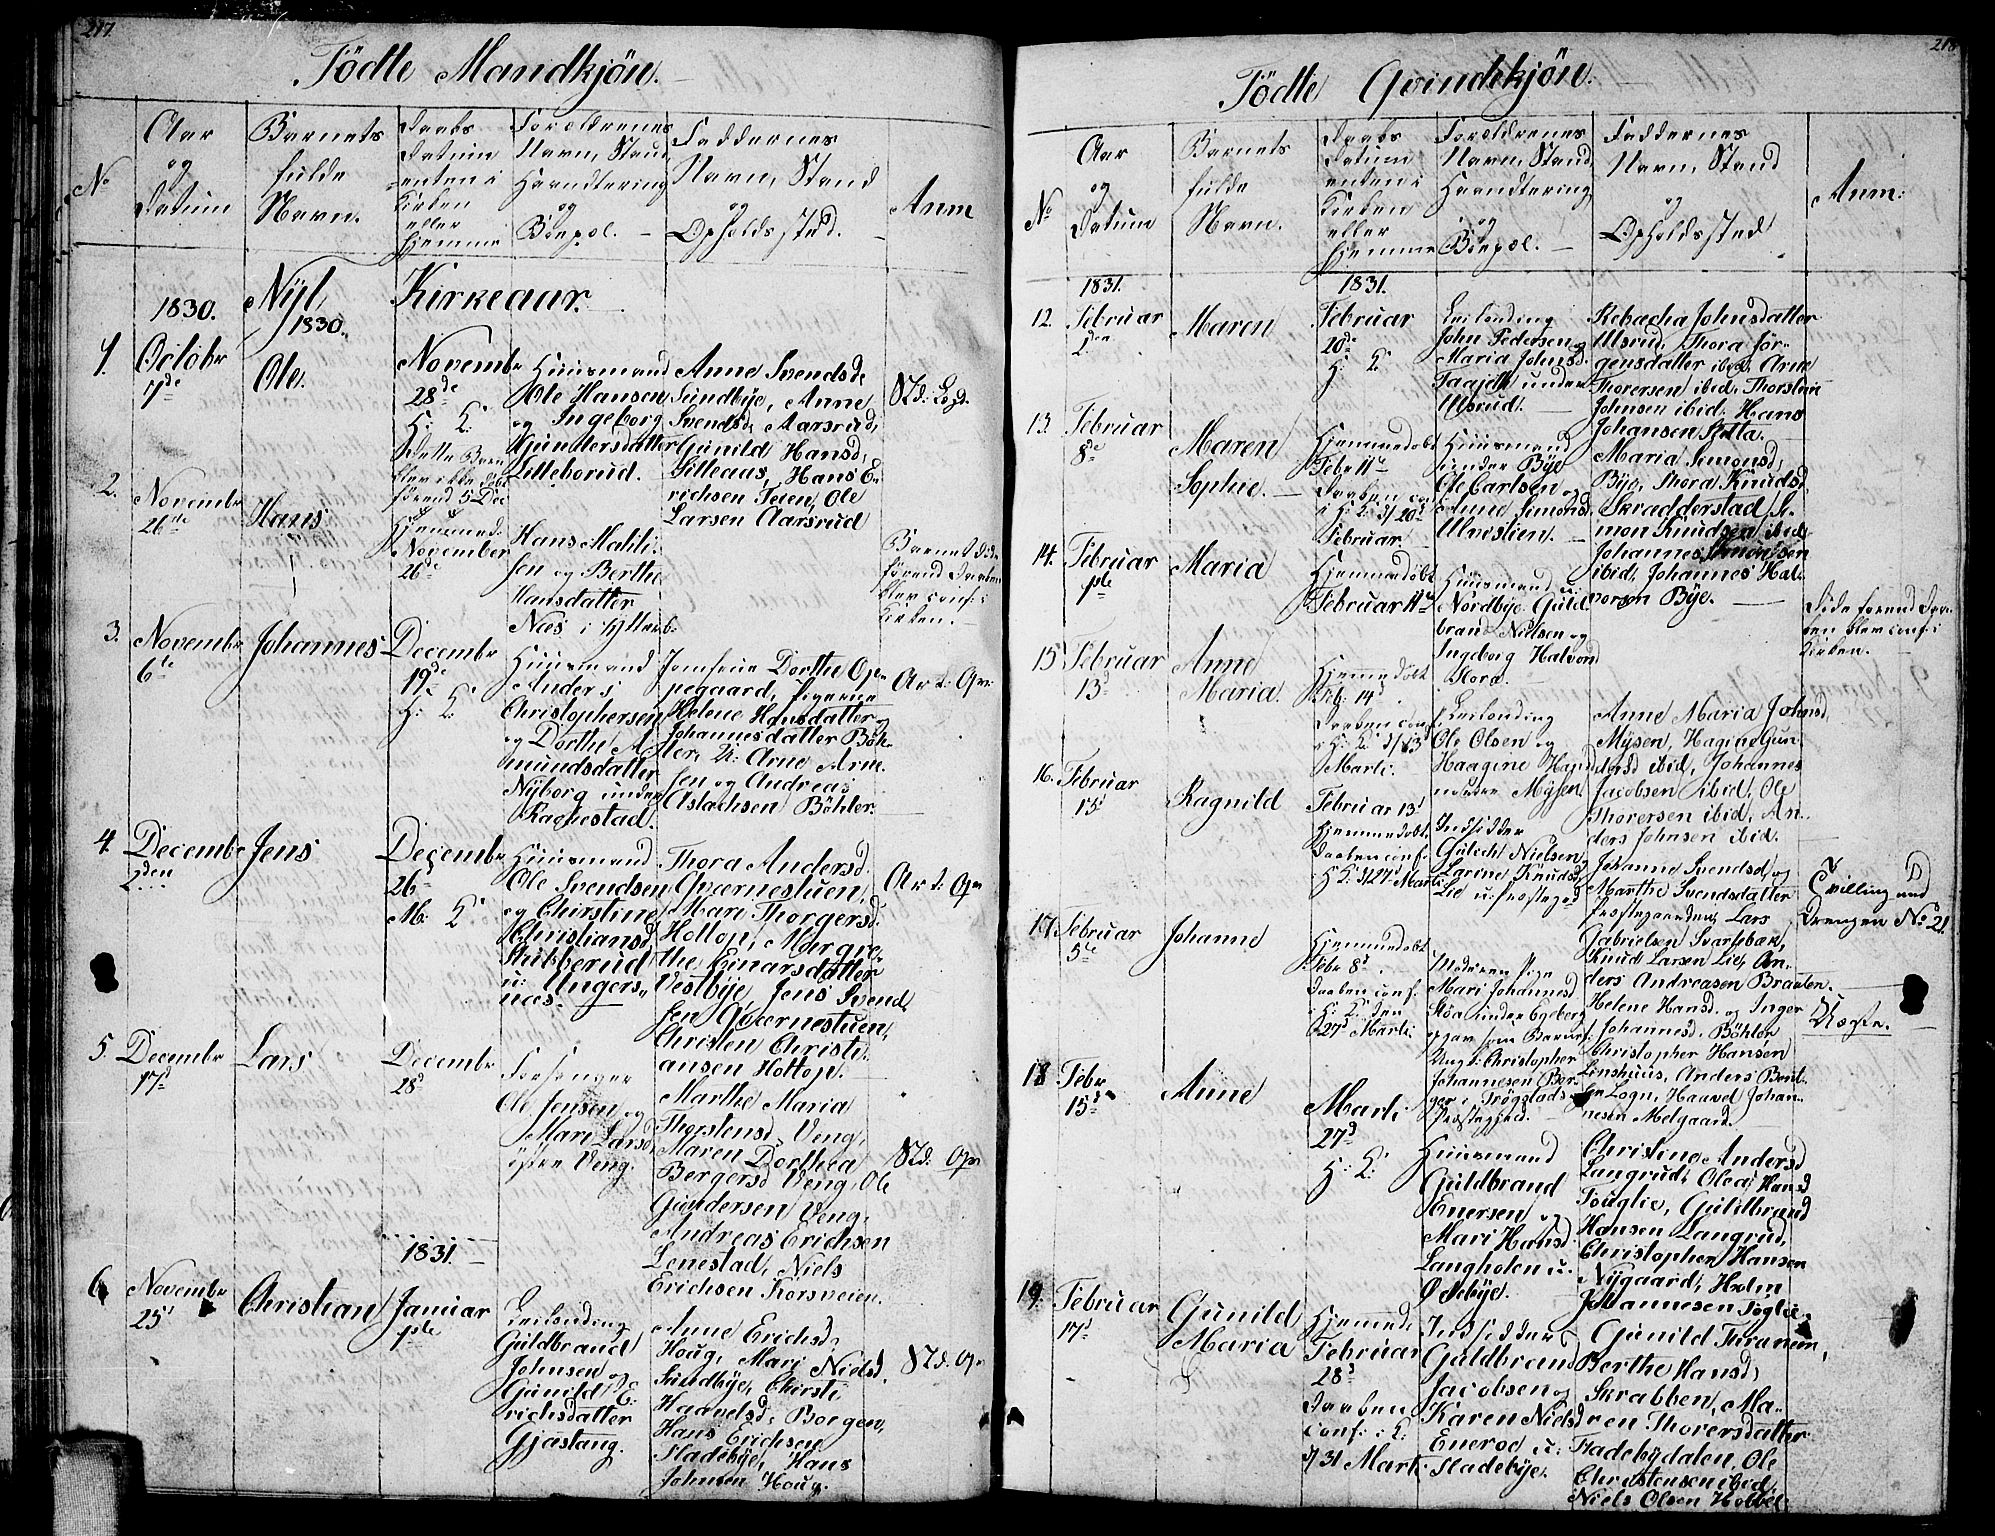 217
Födte Mandkjön.
No
Aar
og
Datum
Barnets
fulde
Navn.
Daabs
Datum
enten i
Kirken
eller
Hjemme
Forældrenes
Navn, Stand
Haandtering
og
Boepæl.
Faddernes
Navn, Stand
og
Opholdssted.
Anm
1830.
Nyt
1830.
Kirkeaar.
1.
Octobr
7de
Ole.
Novembr
28de
H: K:
Dette Barn
blev ikke døbt
førend 5 Dec
Huusmand
Ole Hansen
og Ingeborg
Gundersdatter
Lilleborud.
Anne Svendsd.
Sundbye, Anne
Svendsd. Aarsrud,
Gunild Hansd,
Lilleaas, Hans E-
richsen Teien, Ole
Larsen Aarsrud
2.
Novembr
26de
Hans
Hjemmed.
November
26de
Hans Mathi-
sen og Berthe
Hansdatter
Næs i Rytterb:
Barnet døde
førend Daaben
blev conf: i
Kirken.
3.
Novembr
6te
Johannes
Decembr
19de
H: K:
Huusmand
Anders
Christophersen
og Dorthe A-
mundsdatter
Nyborg under
Ragnestad.
Jomfrue Dorthe Op-
pegaard, Pigerne
Helene Hansdatter og
Johannesdatter Böh-
ler, U: Arne Arne-
sen og Andreas
Aslachsen Böhler.
4.
Decembr
2den
Jens
Decembr
26
M: K:
Huusmand
Ole Svendsen
og Christine
Christiansd.
Stubberud
u: Ungers-
næs.
Thora Andersd.
Qværnestuen,
Mari Thorgersd.
Hottop, Mergre-
the Einarsdatter
Vestbye, Jens Svend
sen Qvernestuen,
Christen Christi-
ansen Hottop.
5
Decembr
17d
Lars
Decembr
28d
Forsanger
Ole Jensen og
Mari Larsd.
östre Veng.
Marthe Maria
Thorstensd. Veng,
Maren Dorthea
Bergersd Veng, Ole
Gundersen Veng,
Andreas Erichsen
Lenestad, Niels
Erichsen Korsveien.
1831.
6
Novembr
25d
Christian
Januar
1ste
Leilænding
Guldbrand
Johnsen og
Gunild E-
richsdatter
Gjöstang.
Anne Erichsd.
Houg, Mari Nielsd.
Sundbye, Chirsti
Haavelsd. Borgen,
Hans Erichsen
Sladebye, Hans
Johnsen Houg.
218
Födte Qvindekjön.
No
Aar
og
Datum
Barnets
fulde
Navn.
Daabs
Datum
enten i
Kirken
eller
Hjemme
Forældrenes
Navn, Stand
Haandtering
og
Boepæl.
Faddernes
Navn, Stand
og
Opholdssted
Anm:
1831.
1831.
12.
Februar
2den
Maren
Februar
20de
H: K:
Leilænding
John Pedersen og
Maria Johnsd.
Taajet under
Ulsrud.
Rebecha Johnsdatter
Ulsrud, Thora Jör-
gensdatter ibid, Arne
Thorersen ibid, Thorsten
Johnsen ibid, Hans
Johansen Slitta.
13.
Februar
8de
Maren
Sophie.
Hjemmedøbt
Febr 11te
Daaben conf.
i H: K: d/ 20de
Februar
Huusmand
under Bye
Ole Carlsen og
Anne Simonsd.
Ulvestien.
Maria Simonsd,
Bye, Thora Knudsd.
Skradderstad Si-
mon Knudsen ibid
Johannes Simonsen
ibid, Johannes Hal-
vorsen Bye.
14.
Februar
1ste
Maria
Hjemmedøbt
Februar 11te
Huusmand u:
Nordbye Guld-
brand Nielsen og
Ingeborg Halvorsd
Mora.
Døde førend Daa-
ben blev conf: i
Kirken.
15
Februar
13d
Anne
Maria.
Hjemmedøbt
Feb: 14d
Daaben conf:
i H: K: d/ 13d
Marti.
Leilænding
Ole Olsen og
Haagine Hansd
under Mysen
Anne Maria Johnsd.
Mysen, Hagine Gun-
dersd ibid, Johannes
Jacobsen ibid, Ole
Thorersen ibid, An-
ders Johnsen ibid.
16.
Februar
15d
Ragnild
Februar 15d
Hjemmedøbt
Daaben conf:
i H: K: d/ 27d Marti
Indsidder
Gulich Nielsen og
Larine Knudsd.
Lie u: Prestegrd
Johanne Svendsd, og
Marthe Svendsdatter
Prestegaarden, Lars
Gabrielsen Svarsbæk,
Knud Larsen Lie, An-
ders Andreasen Braaten.
Tvilling med
Drengen No 21.
17.
Februar
5te
Johanne
Hjemmedøbt
Febr 8d
Daaben conf:
i H: K: den
27d Marti
Moderen Pige
Mari Johannesd
Moa under Egeberg
opgav som Barne-
Ungk: Christopher
Johannesen Ber-
ger i Trögstads
Prestegjeld.
Helene Hansd. og Inger
Johannesd, Böhler
Christopher Hansen
Lenshuus, Anders Bentl-
sen Logn, Haavel Johan-
nesen Melgaard.
Uægte.
18
Febr
15d
Anne
Marti
27d
H: K:
Huusmand
Guldbrand
Enersen og
Mari Hansd.
Langholen u.
Ödebye.
Christine Andersd
Langrud, Olea Hansd
Touglie, Guldbrand
Hansen Langrud,
Christopher Hansen
Nygaard, Holm
Johannesen Toglie.
19.
Februar
17d
Gunild
Maria
Hjemmed:
Februar
28d
Daaben
conf: i K:
d/ 31 Marti
Indsidder
Guldbrand
Jacobsen og
Karen Nielsd
Eneroe u:
Sladebye.
Gunild Thranem,
Berthe Hansd,
Skrabben, Ma-
ren Thorersdatter
Sladebydalen, Ole
Christensen ibid,
Niels Olsen Holbek